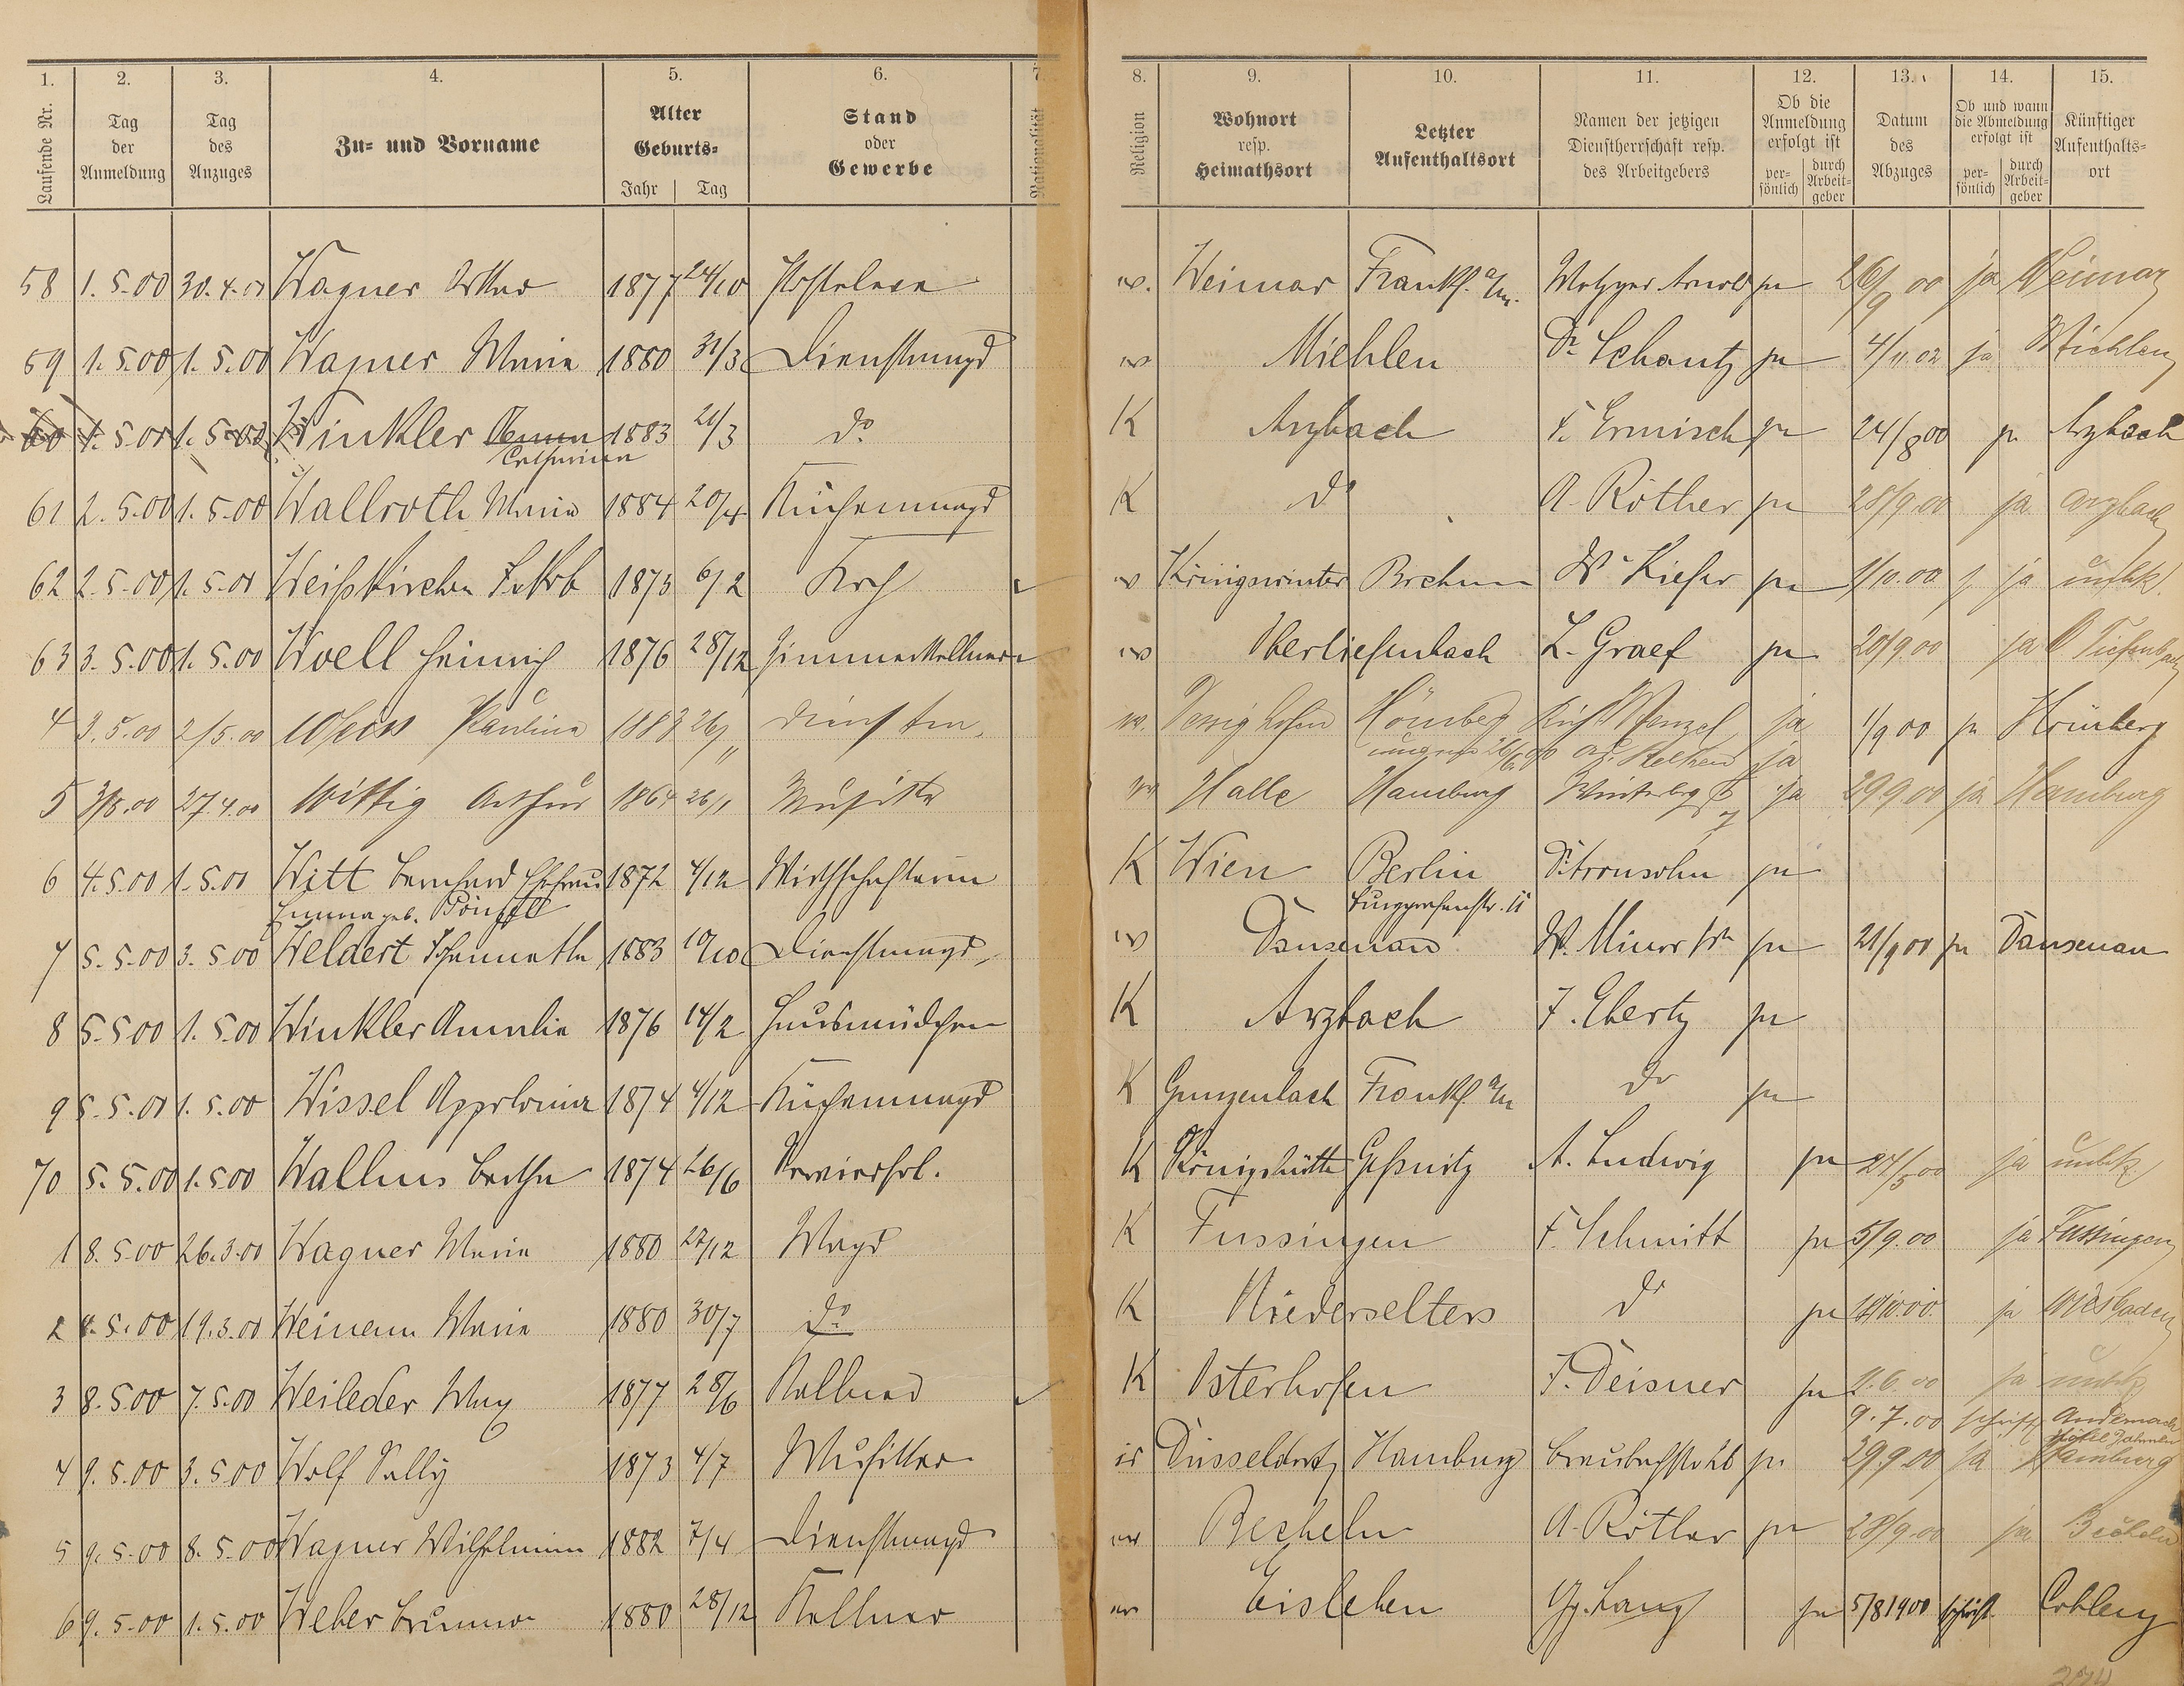 1. 2. 3. 4. 5. 6. 7 8. 9. 10. 11. 12. 13. 14. 15.
Laufende Nr. Tag der Anmeldung Tag des Anzuges Zu- und Vorname Alter Geburts- Jahr Tag Stand oder Gewerbe Nationalität Religion Wohnort resp. Heimathsort Letzter Aufenthaltsort Namen der jetzigen Dienstherrschaft resp. des Arbeitgebers Ob die Anmeldung erfolgt ist per- sönlich durch Arbeit- geber Datum des Abzuges Ob und wann die Abmeldung erfolgt ist per- sönlich durch Arbeit- geber Künftiger Aufenthalts- ort
58 1.5.00 30.4.00 Wagner 1877 24/10 ev. Weimar Frankf. a/m. Metzger Arnold ja 26/9 00 ja Weimar
59 1.5.00 1.5.00 Wagner Maria 1880 31/3 Dienstmagd ev Miehlen Dr. Schantz ja 4/11.02 ja Miehlen
60 1.5.00 1.5.00 Winkler 1883 21/3 do K Arzbach F. Ermisch ja 24/8 00 ja Arzbach
Catharina
61 2.5.00 1.5.00 Wallroth Maria 1884 20/4 Küchenmagd K do A. Röther ja 28/9.00 ja Arzbach
62 2.5.00 1.5.00 Weißkirchen Jakob 1873 6/2 Koch ev Königswinter W Kiefer ja 1/10.00 ja unbek.
63 3.5.00 1.5.00 Woell Heinrich 1876 28/12 Zimmerkellner ev Obertiefenbach L. Graef ja 20/9.00 ja O Tiefenbach
4 3.5.00 2/5.00 Weiss Paulina 1883 26/11 ev. Hömberg Wenzel ja 1/9 00 ja Hömberg
ja
5 27.4.00 Wittig Arthur 1864 26/1 Musiker ev Halle Hamburg Winterberg ja 29.9.00 ja Hamburg
6 4.5.00 1.5.00 Witt Bernhard Ehefrau 1872 4/12 K Wien Berlin Dr. Aronsohn ja
Emma geb. Burggrafenstr. 11
7 5.5.00 3.5.00 Weldert 1883 10/10 Dienstmagd ev Dausenau W. Minor ja 21/9 00 ja Dausenau
8 5.5.00 1.5.00 Winkler Amalie 1876 14/2 Hausmädchen K Arzbach F. Ebertz ja
9 5.5.00 1.5.00 Wissel Appolonia 1874 4/12 Küchenmagd K Frankf a/m do ja
70 5.5.00 1.5.00 Wallus Bertha 1874 26/6 Servierfrl. K Königshütte Geßnitz A. Ludwig ja 24/5 00 ja unbek
1 8.5.00 26.3.00 Wagner Maria 1880 27/12 Magd K Fussingen F. Schmitt ja 5/9.00 ja Fussingen
2 8.5.00 19.3.00 Weinem Maria 1880 30/7 do K Niederselters do ja ja Wiesbaden
3 8.5.00 7.5.00 Weileder Max 1877 28/6 Kellner K Osterhofen F. Deisner ja 9.6.00 ja unbek
9.7.00 schriftl Andernach
4 9.5.00 3.5.00 Wolf Sally 1873 4/7 Musiker is Düsseldorf Hamburg ja 29.9.00 ja Hamburg
5 9.5.00 8.5.00 Wagner Wilhelmine 1882 7/4 Dienstmagd ev Becheln A. Röther ja 28/9.00 ja Becheln
6 9.5.00 1.5.00 Weber Brunno 1880 28/12 Kellner ev Eisleben Gg. Lang ja 5/8 1900 schriftl. Coblenz